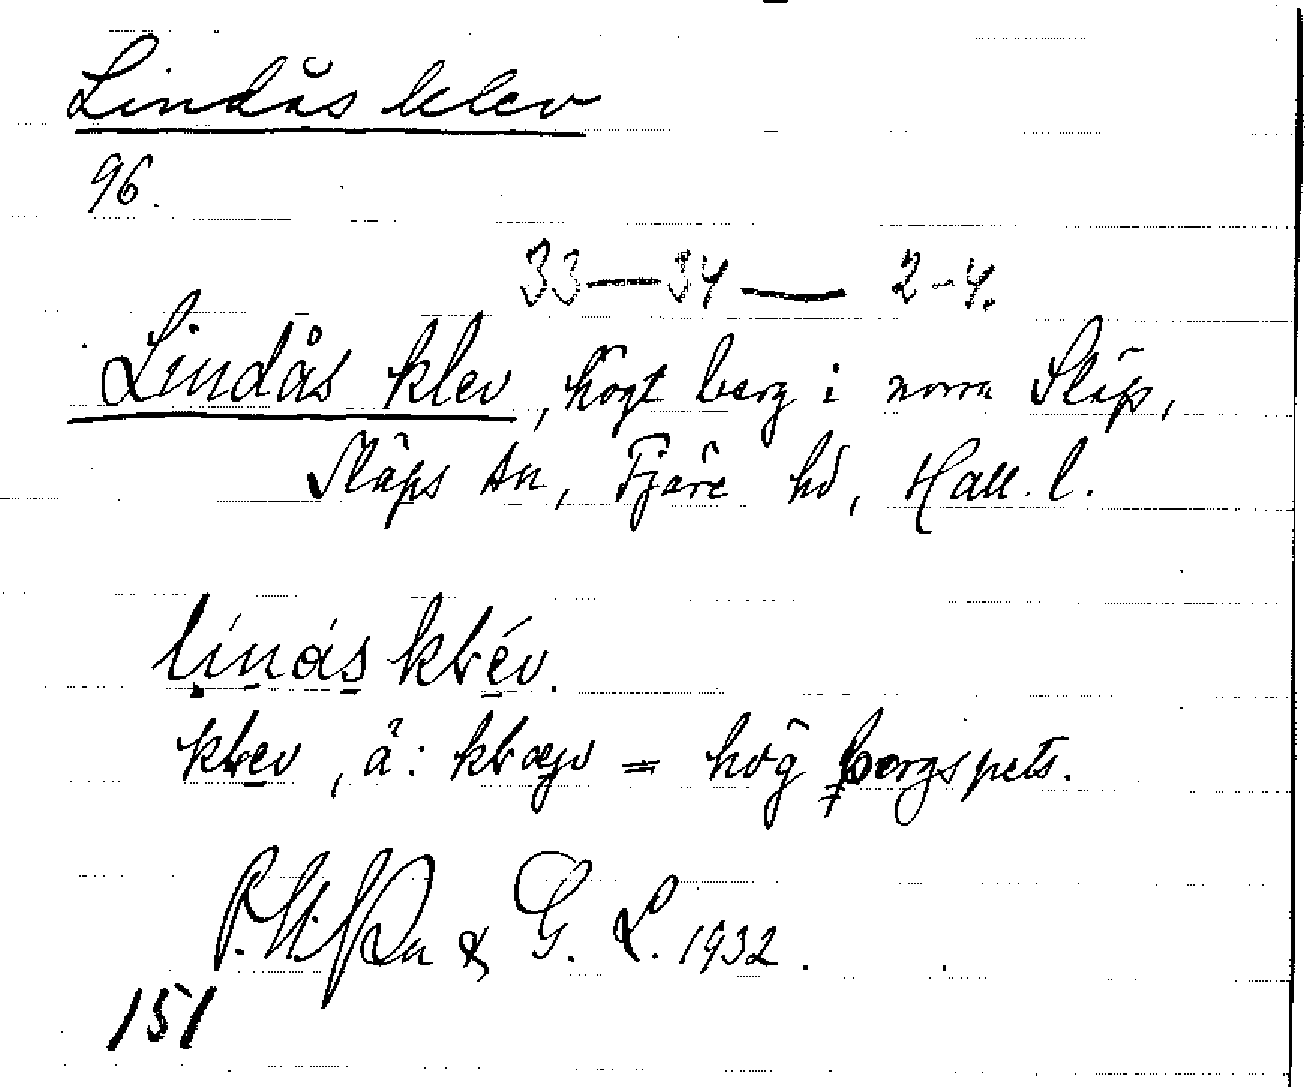 Lindås klev
96.
33—34 — 2-4.
Lindås klev, högt berg i norra Släp,
Släps sn, Fjäre hd, Hall. l.
klev, ä: = hög bergspets.
& G. L. 1932.
151